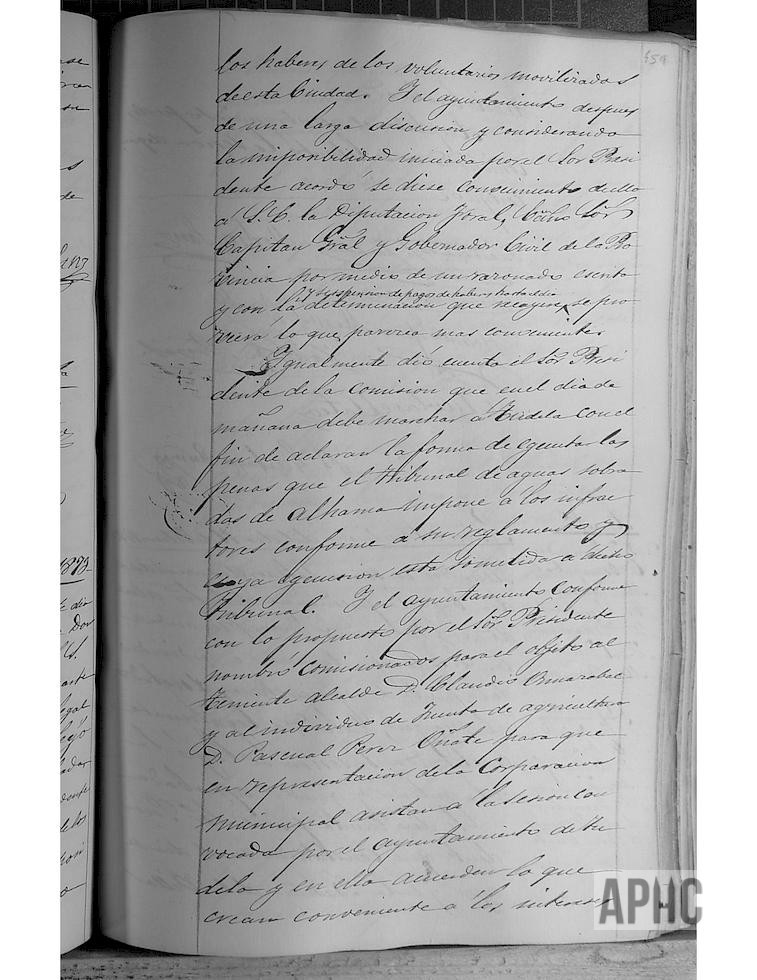 159
los haberes de los voluntarios movilizados
de esta Ciudad. Y el ayuntamiento despues
de una larga discusion y considerando
la imposibilidad iniciada por el Sor Presi
dente acordó se diese conocimiento de ello
á S.E. la Diputacion foral, Exmo Sor
Capitan Gral y Gobernador Civil de la Pro
vincia por medio de un razonado escrito
y suspension de pagos de haberes hasta el dia
y con la determinacion que recayese se pro
veerá lo que parezca mas conveniente.
Igualmente dió cuenta el Sor Presi
dente de la comision que en el dia de
mañana debe marchar á Tudela con el
fin de aclarar la forma de egecutar las
penas que el tribunal de aguas sobra
das de Alhama impone á los infrac
tores conforme á su reglamento y
cuya egecucion está sometida a dicho
tribunal. Y el ayuntamiento conforme
con lo propuesto por el Sor Presidente
nombró comisionados para el objeto al
teniente alcalde D. Claudio
y al individuo de Junta de agricultura
D. Pascual Perez Oñate para que
en representacion de la Corporacion
municipal asistan á la sesion con
vocada por el ayuntamiento de Tu
dela y en ella acuerden lo que
crean conveniente á los intereses
1873
APHC